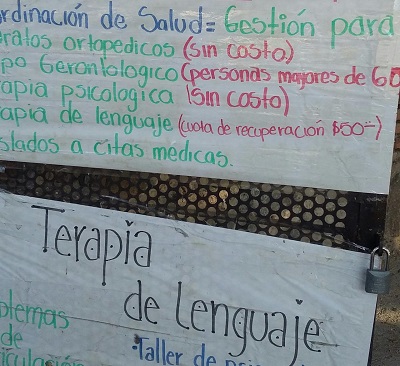 rdinación de Salud= Gestión para
ratos ortopedicos (sin costo)
po Gerontologico (personas mayores de 60
apia psicologica (sin costo)
apia de lenguaje (cuota de recuperación $500-)
slados a citas medicas.
Terapia
de Lenguaje
blemas
de
iculación
•Taller de